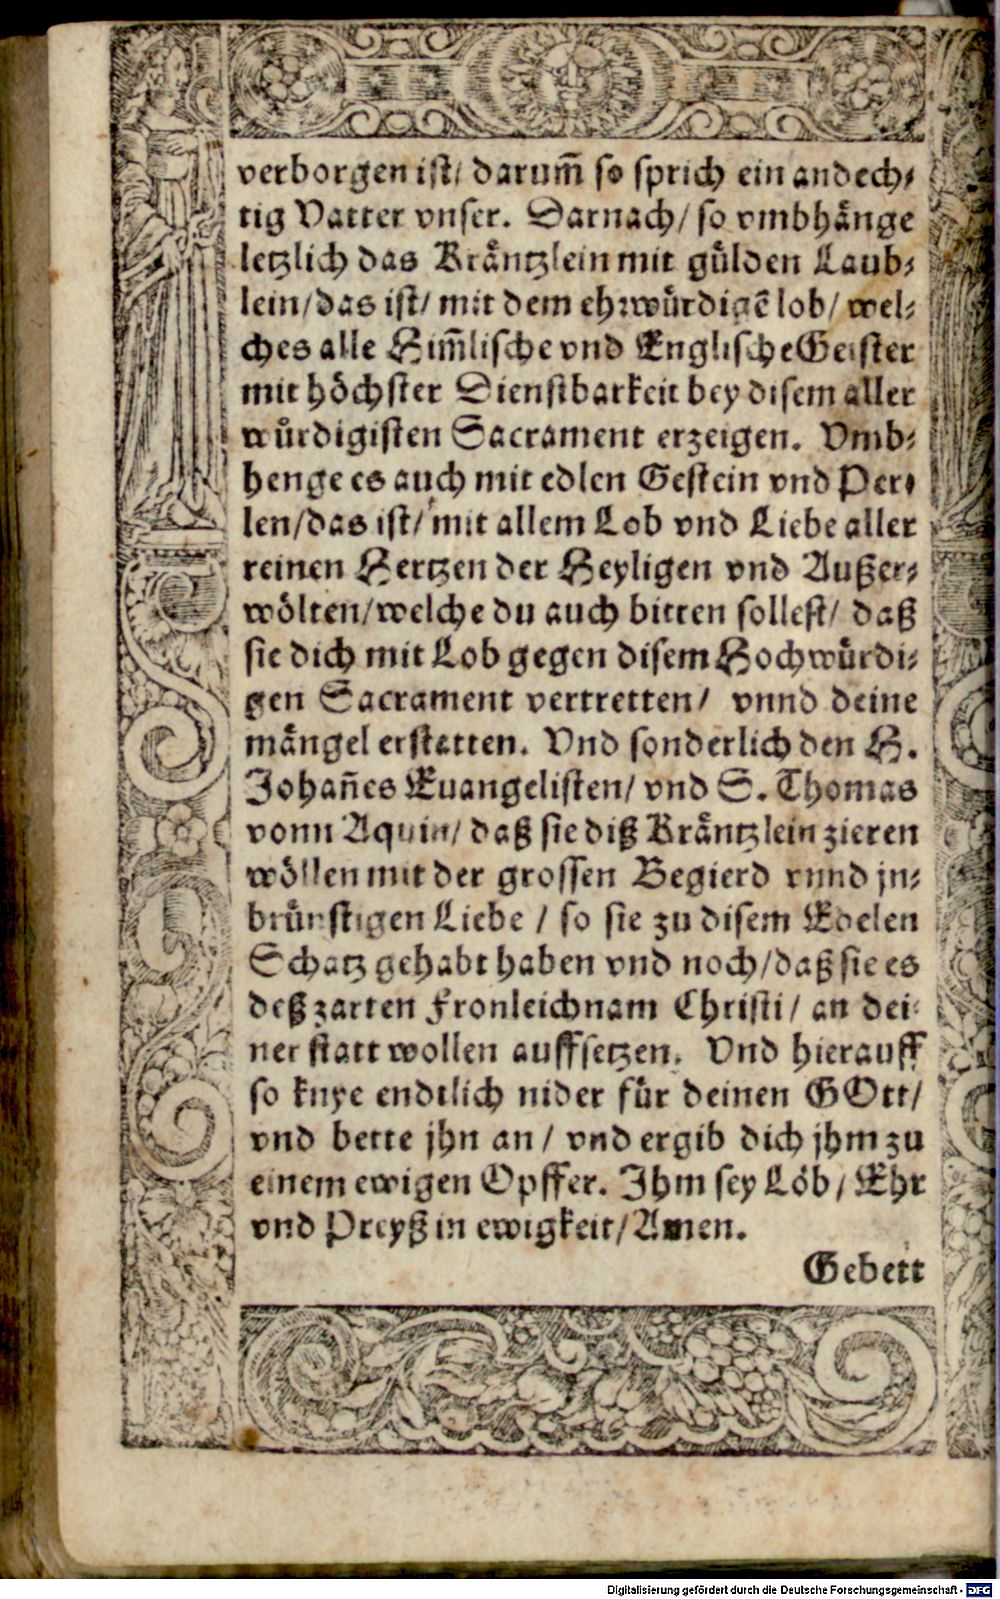 verborgen ist/ darum̃ so sprich ein andech⸗
tig Vatter vnser. Darnach/ so vmbhånge
letzlich das Kråntzlein mit gůlden Laub⸗
lein/das ist/ mit dem ehrwůrdigẽ lob/ wel⸗
ches alle Him̃lische vnd Englische Geister
mit hôchster Dienstbarkeit bey disem aller
wůrdigisten Sacrament erzeigen. Vmb⸗
henge es auch mit edlen Gestein vnd Per⸗
len/das ist/ mit allem Lob vnd Liebe aller
reinen Hertzen der Heyligen vnd Außer⸗
wôlten/welche du auch bitten sollest/ daß
sie dich mit Lob gegen disem Hochwůrdi⸗
gen Sacrament vertretten/ vnnd deine
mångel erstatten. Vnd sonderlich den H.
Johañes Euangelisten/ vnd S. Thomas
vonn Aquin/ daß sie diß Kråntzlein zieren
wôllen mit der grossen Begierd vnnd jn⸗
brůnstigen Liebe / so sie zu disem Edelen
Schatz gehabt haben vnd noch/daß sie es
deß zarten Fronleichnam Christi/ an dei⸗
ner statt wollen auffsetzen. Vnd hierauff
so knye endtlich nider fůr deinen GOtt/
vnd bette jhn an / vnd ergib dich jhm zu
einem ewigen Opffer. Ihm sey Lôb / Ehr
vnd Preyß in ewigkeit/Amen.
Gebett
Digitalisierung gefördert durch die Deutsche Forschungsgemeinschaft - DFG